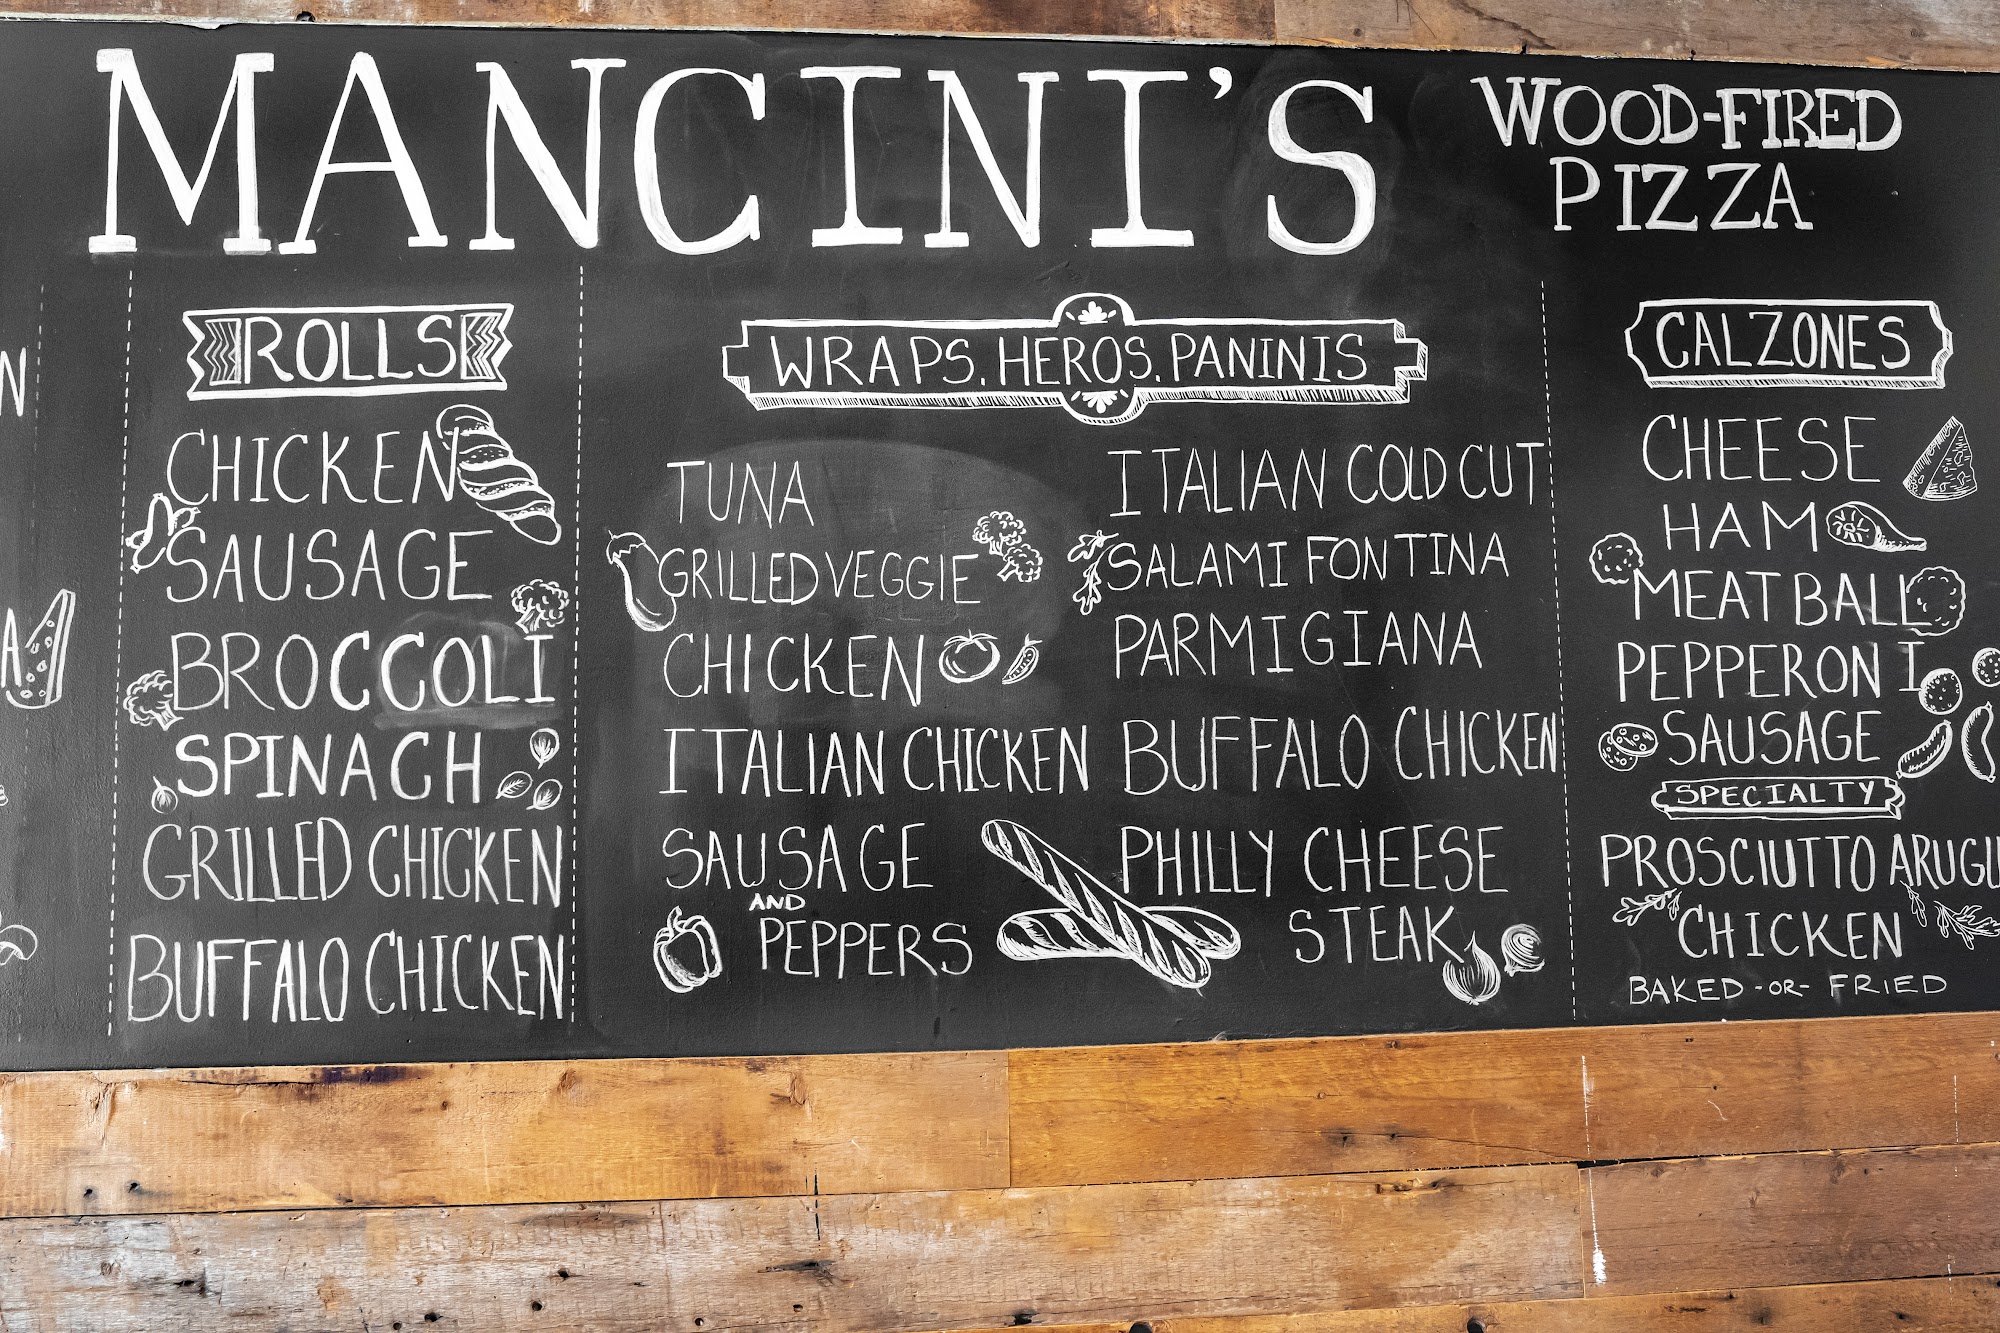 MANCINI'S
WOOD-FIRED
PIZZA
ROLLS
CHICKEN
SAUSAGE
BROCCOLI
SPINACH
GRILLED CHICKEN
BUFFALO CHICKEN
WRAPS. HEROS. PANINIS
TUNA
GRILLED VEGGIE
CHICKEN
ITALIAN CHICKEN
SAUSAGE
AND
PEPPERS
ITALIAN COLD CUT
SALAMI FONTINA
PARMIGIANA
BUFFALO CHICKEN
PHILLY CHEESE
STEAK
CALZONES
CHEESE
HAM
MEATBALL
PEPPERONI
SAUSAGE
SPECIALTY
PROSCIUTTO ARUGU
CHICKEN
BAKED -OR- FRIED